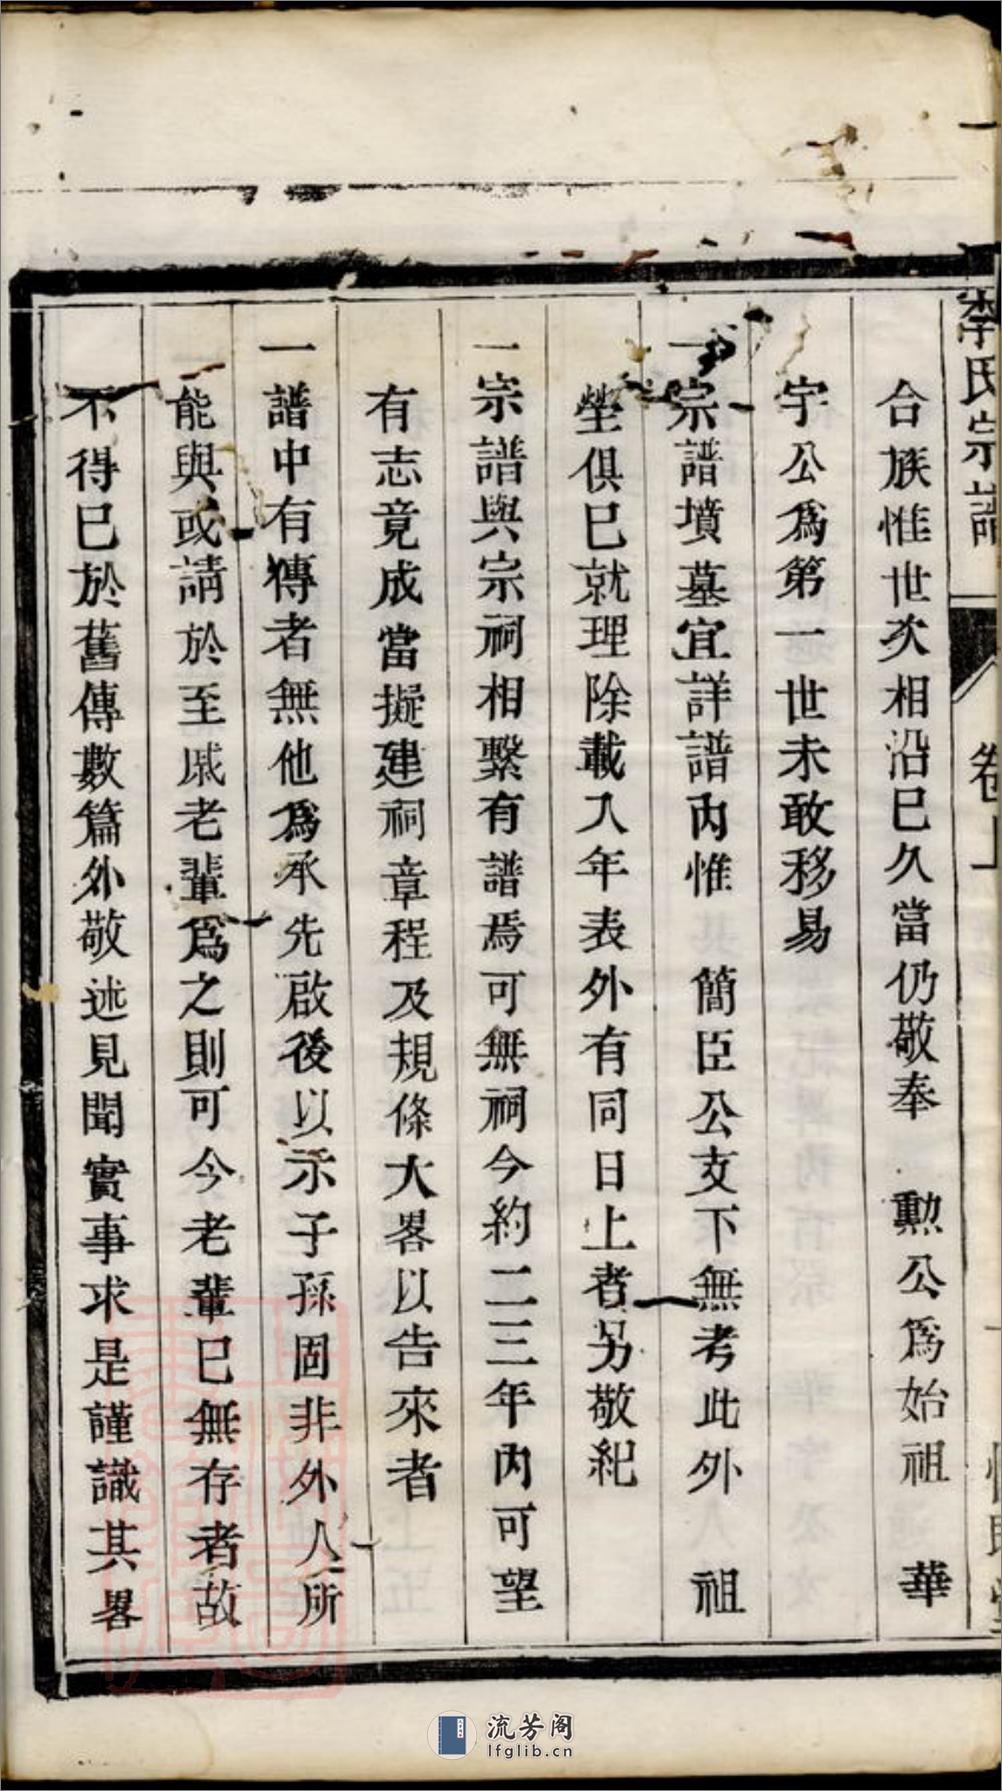 李氏宗譜
卷上
合族惟世次相沿已久當仍敬奉　勲公爲始祖　華
宇公爲第一世未敢移易
一宗譜墳墓宜詳譜內惟　簡臣公支下無考此外　祖
塋俱已就理除載入年表外有同日上者另敬紀
一宗譜與宗祠相繫有譜焉可無祠今約二三年內可望
有志竟成當擬建祠章程及規條大畧以告來者
一譜中有傳者無他爲承先啟後以示子孫固非外人所
能與或請於至戚老輩爲之則可今老輩已無存者故
不得已於舊傳數篇外敬述見聞實事求是謹識其畧
流芳阁
lfglib.cn